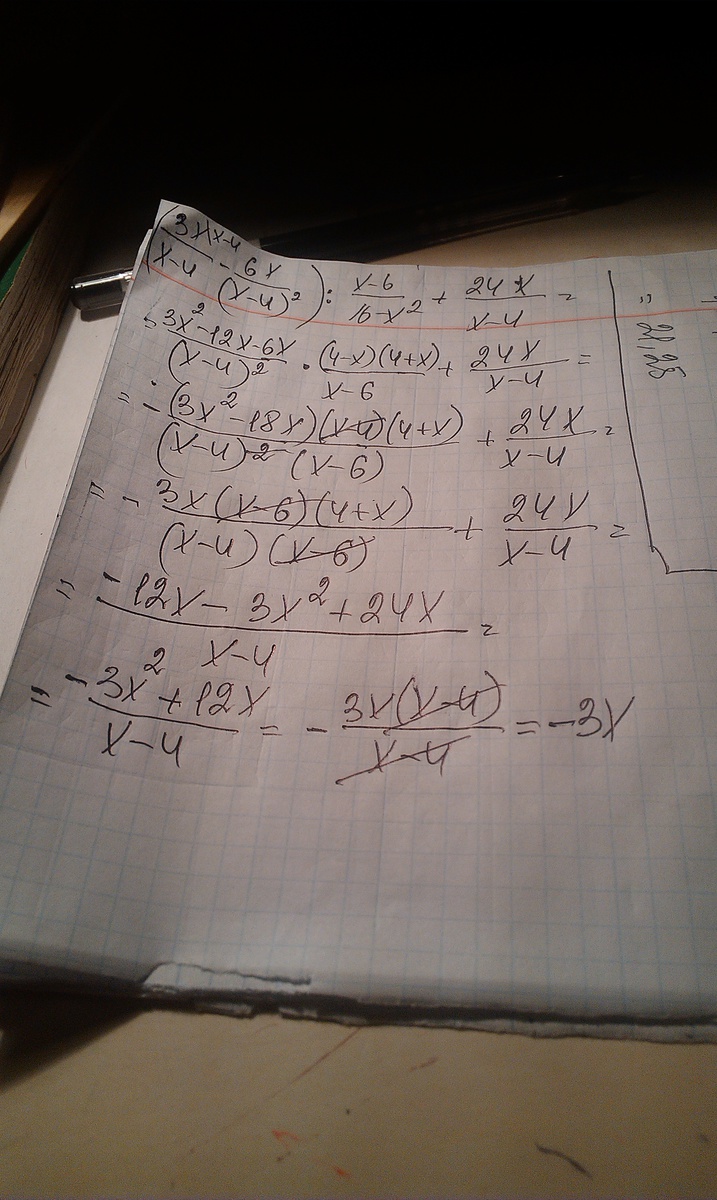 (3x\x-4 / x-4 - 6x / (x-4)²) : x-6 / 16-x² + 24x / x-4 =
= 3x²-12x-6x / (x-4)² · (4-x)(4+x) / x-6 + 24x / x-4 =
= - (3x²-18x)(x-4)(4+x) / (x-4)² (x-6) + 24x / x-4 =
= - 3x(x-6)(4+x) / (x-4)(x-6) + 24x / x-4 =
= -12x - 3x² + 24x / x-4 =
= -3x² + 12x / x-4 = - 3x(x-4) / x-4 = -3x
21,25